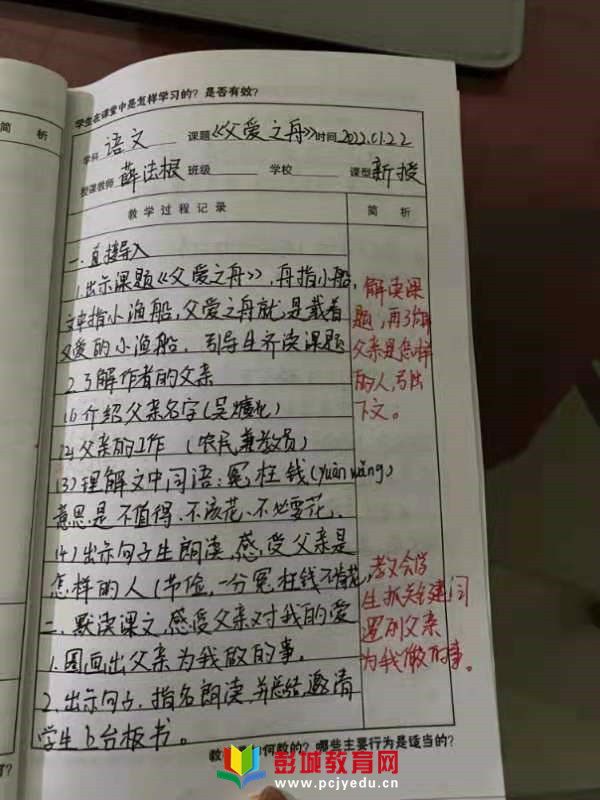 简 析
学生在课堂中是怎样学习的？是否有效？
学科 语文 课题《父爱之舟》时间 2022.01.22
授课教师 薛法根 班级 学校 课型 新授
教学过程记录 简 析
一、直接导入
1.出示课题《父爱之舟》，舟指小船，
文章指小渔船，父爱之舟就是载着
父爱的小渔船，引导生齐读课题
2.了解作者的父亲
(1)介绍父亲名字(吴爌北)
(2)父亲的工作 (农民兼教员)
(3)理解文中词语:冤枉钱(yuān wǎng)
意思是不值得、不该花、不必要花、
(4)出示句子生朗读,感受父亲是
怎样的人(节俭,一分冤枉钱不肯花)
二、默读课文,感受父亲对我的爱
1.圈画出父亲为我做的事。
2.出示句子,指名朗读,并总结,邀请
学生上台板书。
解读课
题，再了解
父亲是怎样
的人,引出
下文。
教会学
生抓关键词
圈出父亲
为我做的事。
教 何教的？哪些主要行为是适当的？
彭城教育网
www.pcjyedu.com